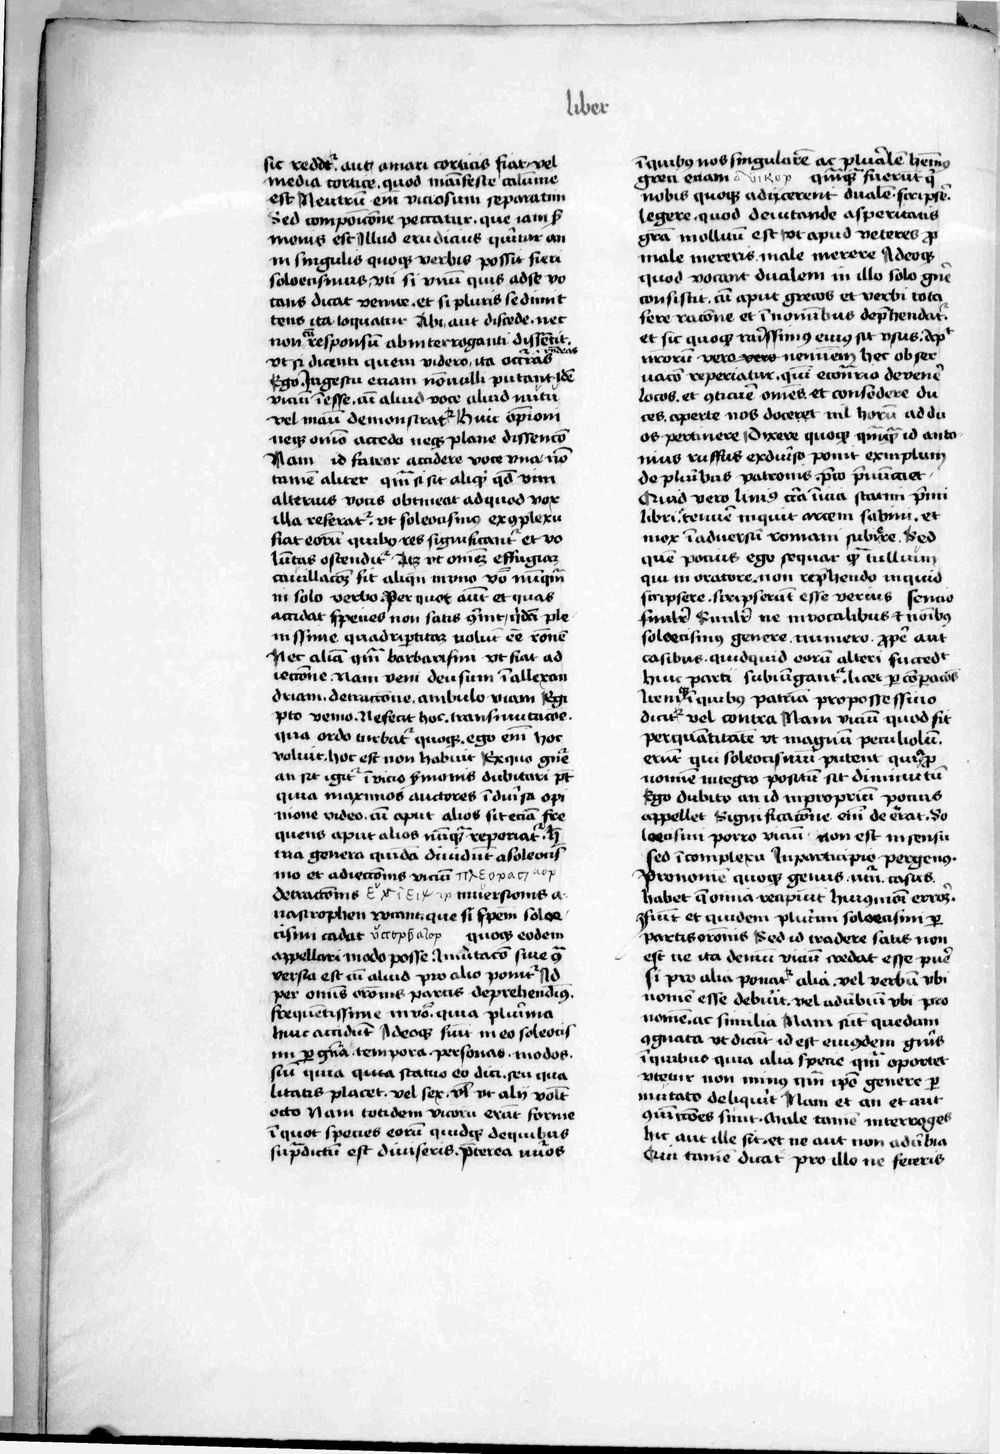 liber
sic reddet̃. aut amari corticis fiat vel
media cortice, quod manifeste calũnie
est Neutrũ em̃ viciosum separatim
Sed compoicõne peccatur. que iam ẜ
monis est Illud erudicius querit̃ an
in singulis quoqꝫ verbis possit fieri
soloecismus, vti si vnũ quis ad se vo
cans dicat venite. et si pluris se dimit
tens ita loquatur Abi, aut discede. nec
non cũ responsũ ab interroganti dissẽtit.
vt si dicenti quem video, ita occurras
Ego. In gestu etiam nõnulli putant idẽ
viciũ ĩesse, cũ aliud voce aliud nutu
vel manu demonstrat̃ Huic opĩoni
neqꝫ omĩo accedo neqꝫ plane dissencõ
Nam id fateor accidere voce vna, nõ
tamẽ aliter qm̃ si sit aliqͥd qd̃ vim
alterius vocis obtineat ad quod vox
illa referat̃. vt soloecismus ex ꝯplexu
fiat eorũ quibꝫ res significant̃ et vo
lũtas ostendit̃ Atqꝫ vt omẽꝫ effugiaꝫ
cauillacõꝫ sit aliqñ in vno võ nũqm̃
in solo verbo. Per quot aut et quas
accidat species non satis ꝯuenit, qͥdã ple
nissime quadripertitaꝫ volũt eẽ rõnẽ
Nec aliã qm̃ barbarismi vt fiat ad
iectõne. Nam veni de susum ĩ allexan
driam. detractõne, ambulo viam Egi
pto venio. Ne fecit hoc. transmutacõe.
qua ordo turbat̃ quoqꝫ. ego em̃ hoc
voluit. hoc est non habuit Ex quo gnẽ
an sit igit̃ ĩ vicio ẜmonis dubitari pt̃
quia maximos auctores ĩ diu̾sa opi
nione video. cũ aput alios sit eciã fre
quens aput alios nũqͣꝫ reperiat̃. H̃
tria genera quidã diuidũt a soloecis
mo et adiectõnis viciũ πλεορασμορ
detractõnis ελλειψιρ inuersionis a
nastrophen vocant, que si ĩ spẽm soloe
cismi cadat ὑπερβατορ quoqꝫ eodem
appellari modo posse. Inmutacõ siue qͣ
versa est cũ aliud pro alio ponit̃ Ad
per omnis orõnis partis deprehendimꝰ.
frequẽtissime in võ. quia plurima
huic accidũt Adeoqꝫ fiũt in eo soloecis
mi ꝑ gñã, tempora, personas, modos.
siũ quia quita statuo eo dici. seu qua
litatis placet. vel sex. vĩ vt alij volũt
octo Nam totidem vicorũ erũt forme
ĩ quot species eorũ quidqꝫ de quibus
supͣdictũ est diuiseris. Preterea nũros
ĩ quibus nos singularẽ ac pluralẽ hẽmꝰ
greci etiam δυικορ qm̃qͣ fuerũt qͥ
nobis quoqꝫ adijcerent dualẽ. scripse̾.
legere, quod deiutande asperitatis
grã mollitũ est vt apud veteres ꝓ
male mereris. male merere Adeoqꝫ
quod vocant dualem in illo solo gñe
consistit. cũ aput grecos et verbi tota
fere racõne et ĩ nominibus deprehendat̃.
et sic quoqꝫ rarissimus eius sit vsus. apͭ
nrorũ vero vero neminẽ hec obser
uacõ reperiatur. quĩ ecõtrario devenẽ
locos. et ꝯticuẽre omẽs. et consedere du
ces. aperte nos doceret nil horũ ad du
os pertinere Dixere quoqꝫ qm̃qͣ id anto
nius ruffus ex diu̾so ponit exemplum
de pluribus patronis. preco pronũciet
Quid vero livius circa inicia statim primi
libri. tenuẽ inquit arcem sabini. et
mox ĩ adversũ romani subiere. Sed
quẽ pocius ego sequar qͣ tullium
qui in oratore. non reprehendo inquid
scripsere. scripserũt esse verius sencio
similr̃ Similr̃ ne in vocalibus et noibꝫ
soloecismus genere. numero. prope aut
casibus. quidquid eorũ alteri succedt
huic parti subiungant̃. licet ꝑ cõpacõs
Itemqꝫ ĩ quibus patriũ pro possessiuo
dicit̃ vel contra Nam viciũ quod fit
per quantitatẽ vt magnũ peculiolũ.
erũt qui soloecismũ putent quia ꝓ
nomĩe integro positũ sit diminutũ
Ego dubito an id inpropriũ pocius
appellet Significacõne eim̃ de errat. So
loecismi porro viciũ non est in sensu
sed ĩ complexu In participio per genus.
Pronomẽ quoqꝫ genus. nũm. casus.
habet q̃ omia recipiũt huiꝯmodi erroꝫ.
Fiũt et quidem plurimi soloecismi ꝑ
partis orõnis Sed id tradere satis non
est ne ita demũ viciũ credat esse puer̃
si pro alia ponat̃ alia. vel verbũ vbi
nomẽ esse debuit. vel adubiũ vbi pro
nomẽ. ac similia Nam sũt quedam
ꝯgnata vt dicũt id est eiusdem gñis
ĩ quibus quia alia specie qm̃ oportet
vtetur non minus qm̃ ipõ genere ꝑ
mutato deliquĩt Nam et an et aut
ꝯiũctões sunt. Male tamẽ interroges
hic aut ille sit. et ne aut non adu̾bia
Qui tamẽ dicat pro illo ne feceris